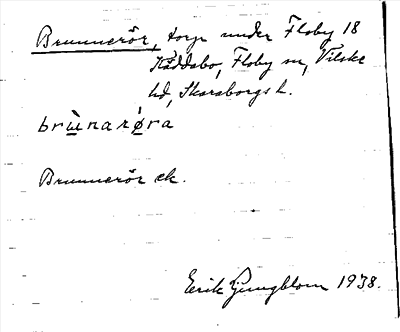 Brunnerör, torp under Floby 18
Käddabo, Floby sn, Vilske
hd, Skaraborgs l.
brùnarǿra
Brunnerör ek.
Erik Ljungblom 1938.